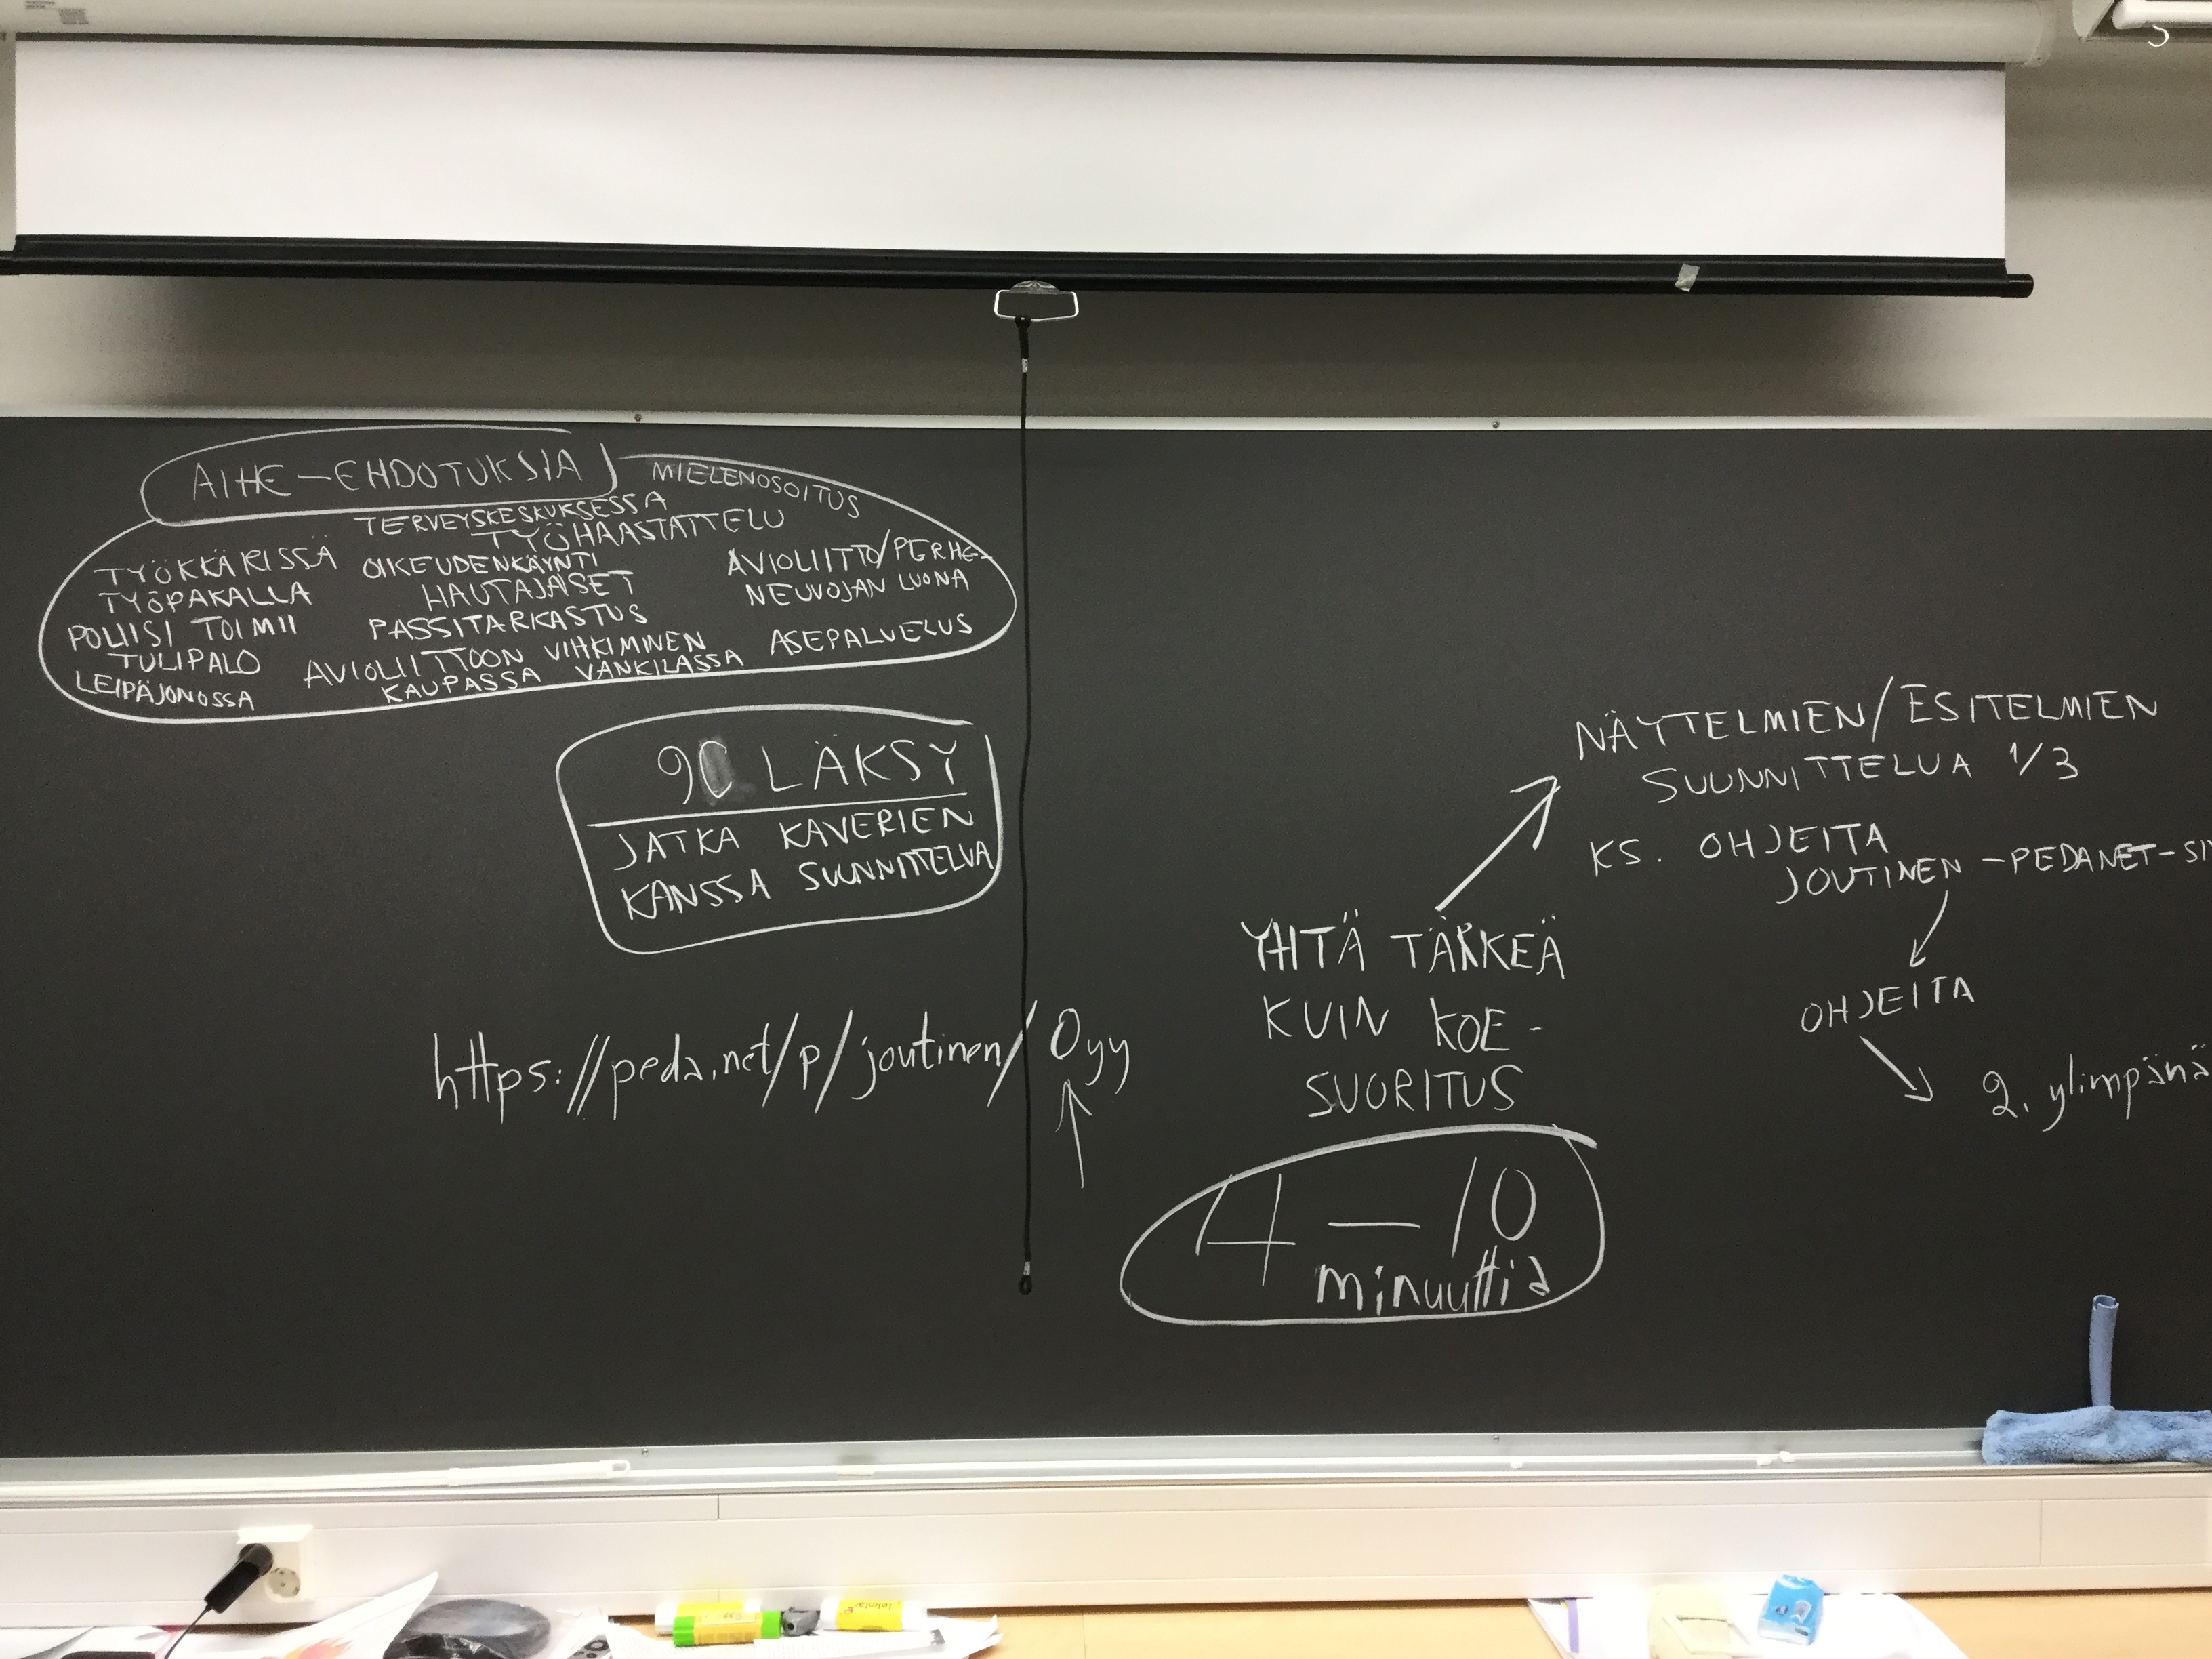 AIHE-EHDOTUKSIA
MIELENOSOITUS
TERVEYSKESKUKSESSA
TYÖHAASTATTELU
TYÖKKÄRISSÄ
OIKEUDENKÄYNTI
AVIOLIITTO/PERHE-
TYÖPAKALLA
HAUTAJAISET
NEUVOJAN LUONA
POLIISI TOIMII
PASSITARKASTUS
ASEPALVELUS
TULIPALO
AVIOLIITTOON VIHKIMINEN
LEIPÄJONOSSA
KAUPASSA
VANKILASSA
90 LÄKSY
JATKA KAVERIEN
KANSSA SUUNNITTELUA
https://peda.net/p/joutinen/Oyy
NÄYTTELMIEN/ESITELMIEN
SUUNNITTELUA 1/3
KS. OHJEITA
JOUTINEN-PEDANET-SI
OHJEITA
2. ylimpänä
YHTÄ TÄRKEÄ
KUIN KOE-
SUORITUS
4-10
minuuttia